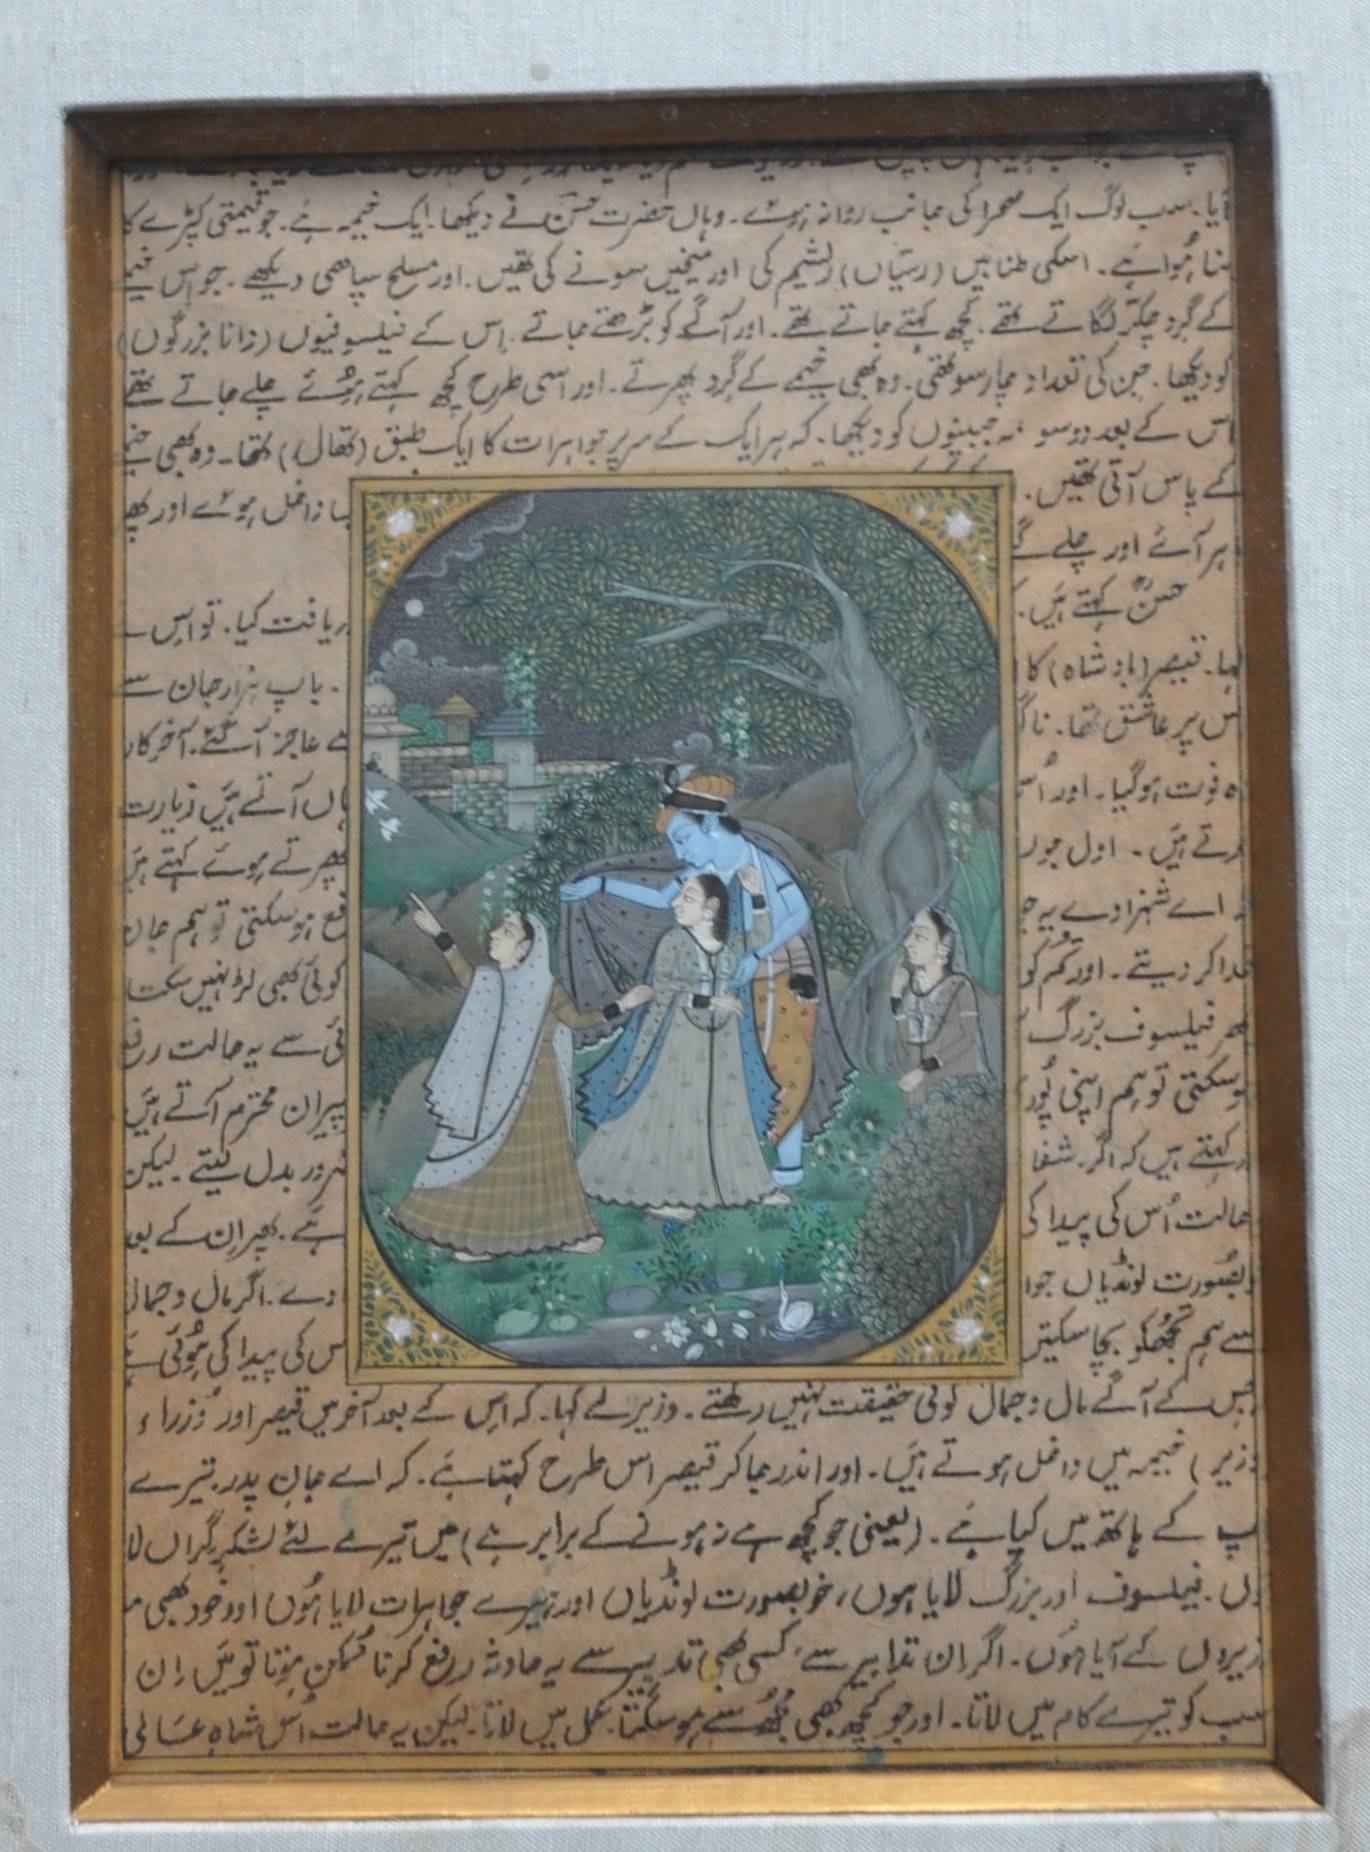 آیا۔ سب لوگ ایک صحرا کی جانب روانہ ہوئے۔ وہاں حضرت حسنؒ نے دیکھا۔ ایک خیمہ ہے۔ جو قیمتی کپڑے کا
بنا ہُوا ہے۔ اسکی طنابیں (رسیاں) ریشم کی اور میخیں سونے کی تھیں۔ اور مسلح سپاہی دیکھے۔ جو اس خیمے
کے گرد چکّر لگاتے تھے۔ کچھ کہتے جاتے تھے۔ اور آگے کو بڑھتے جاتے۔ اِس کے فیلسوفیوں (دانا بزرگوں)
کو دیکھا۔ جن کی تعداد چار سو تھی۔ وہ بھی خیمے کے گرد پھرتے۔ اور اسی طرح کچھ کہتے ہوُئے چلے جاتے تھے
اس کے بعد دو سو مہ جبینوں کو دیکھا۔ کہ ہر ایک کے سر پر جواہرات کا ایک طبق (تھال) تھا۔ وہ بھی خیمے
کے پاس آتی تھیں۔ داخل ہوئے اور پھر
باہر آئے اور چلے گئے
حسنؒ کہتے ہیں۔ دریافت کیا۔ تو اس نے
کہا۔ قیصر (بادشاہ) کا۔ باپ ہزار جان سے
اس پر عاشق تھا۔ عاجز آ گئے۔ آخر کار
وہ فوت ہو گیا۔ اور اُس یہاں آتے ہیں زیارت
کرتے ہیں۔ اول پھرتے ہوئے کہتے ہیں
۔ اے شہزادے یہ جو دفع ہو سکتی تو ہم جان
فدا کر دیتے۔ اور تم کو کوئی بھی لڑ نہیں سکتا
پھر فیلسوف بزرگ سے یہ حالت رفع
ہو سکتی تو ہم اپنی پُوری پیران محترم آتے ہیں
کہتے ہیں کہ اگر شفا ضرور بدل لیتے۔ لیکن
حالت اُس کی پیدا کی ہے۔ پھر ان کے بعد
خوبصورت لونڈیاں دے۔ اگر مال و جمال
سے ہم تجھ کو بچا سکتیں اس کی پیدا کی ہوُئی ہے
جس کے آگے مال و جمال کوئی حقیقت نہیں رکھتے۔ وزیر نے کہا۔ کہ اس کے بعد آخر میں قیصر اور وُزراء
(وزیر) خیمہ میں داخل ہوتے ہیں۔ اور اندر جا کر قیصر اس طرح کہتا ہے۔ کہ اے جانِ پدر۔ تیرے
باپ کے ہاتھ میں کیا ہے۔ (یعنی جو کچھ ہے نہ ہونے کے برابر ہے) میں تیرے لئے لشکرِ گراں لایا
ہوں۔ فیلسوف اور بزرگ لایا ہوں، خوبصورت لونڈیاں اور ہیرے جواہرات لایا ہُوں اور خود بھی مع
وزیروں کے آیا ہوُں۔ اگر اِن تدابیر سے کسی بھی تدبیر سے یہ حادثہ رفع کرنا مُمکن ہوتا تو میَں اِن
سب کو تیرے کام میں لاتا۔ اور جو کچھ بھی مُجھ سے ہو سکتا۔ عمل میں لاتا۔ لیکن یہ حالت اُس شاہِ عالی